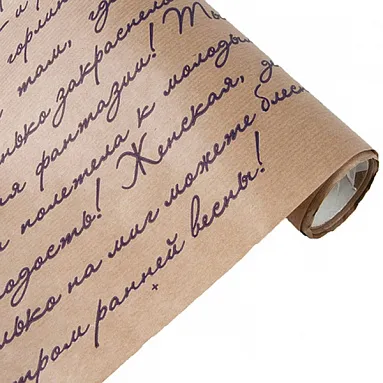 и
горлин
там, гд
нько закраснело
я фантазии! То
полетела к молоды
лодость! Женская, д
лько на миг может блес
тром ранней весны!